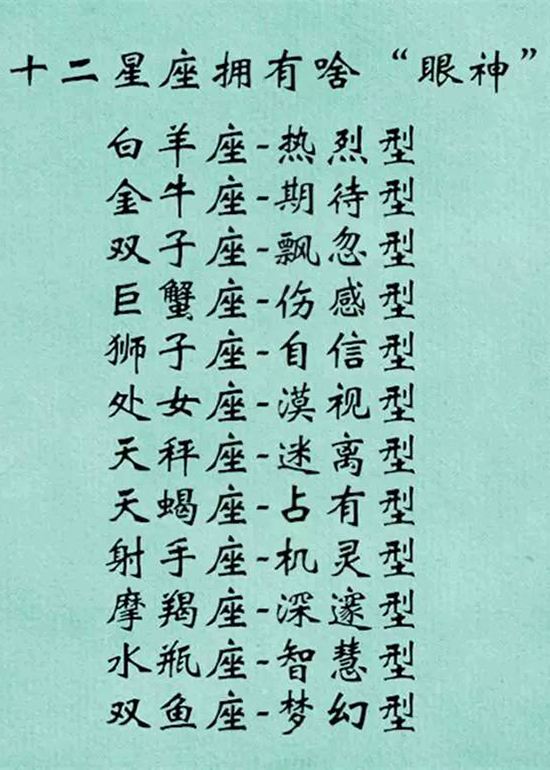 十二星座拥有啥“眼神”
白羊座-热烈型
金牛座-期待型
双子座-飘忽型
巨蟹座-伤感型
狮子座-自信型
处女座-漠视型
天秤座-迷离型
天蝎座-占有型
射手座-机灵型
摩羯座-深邃型
水瓶座-智慧型
双鱼座-梦幻型